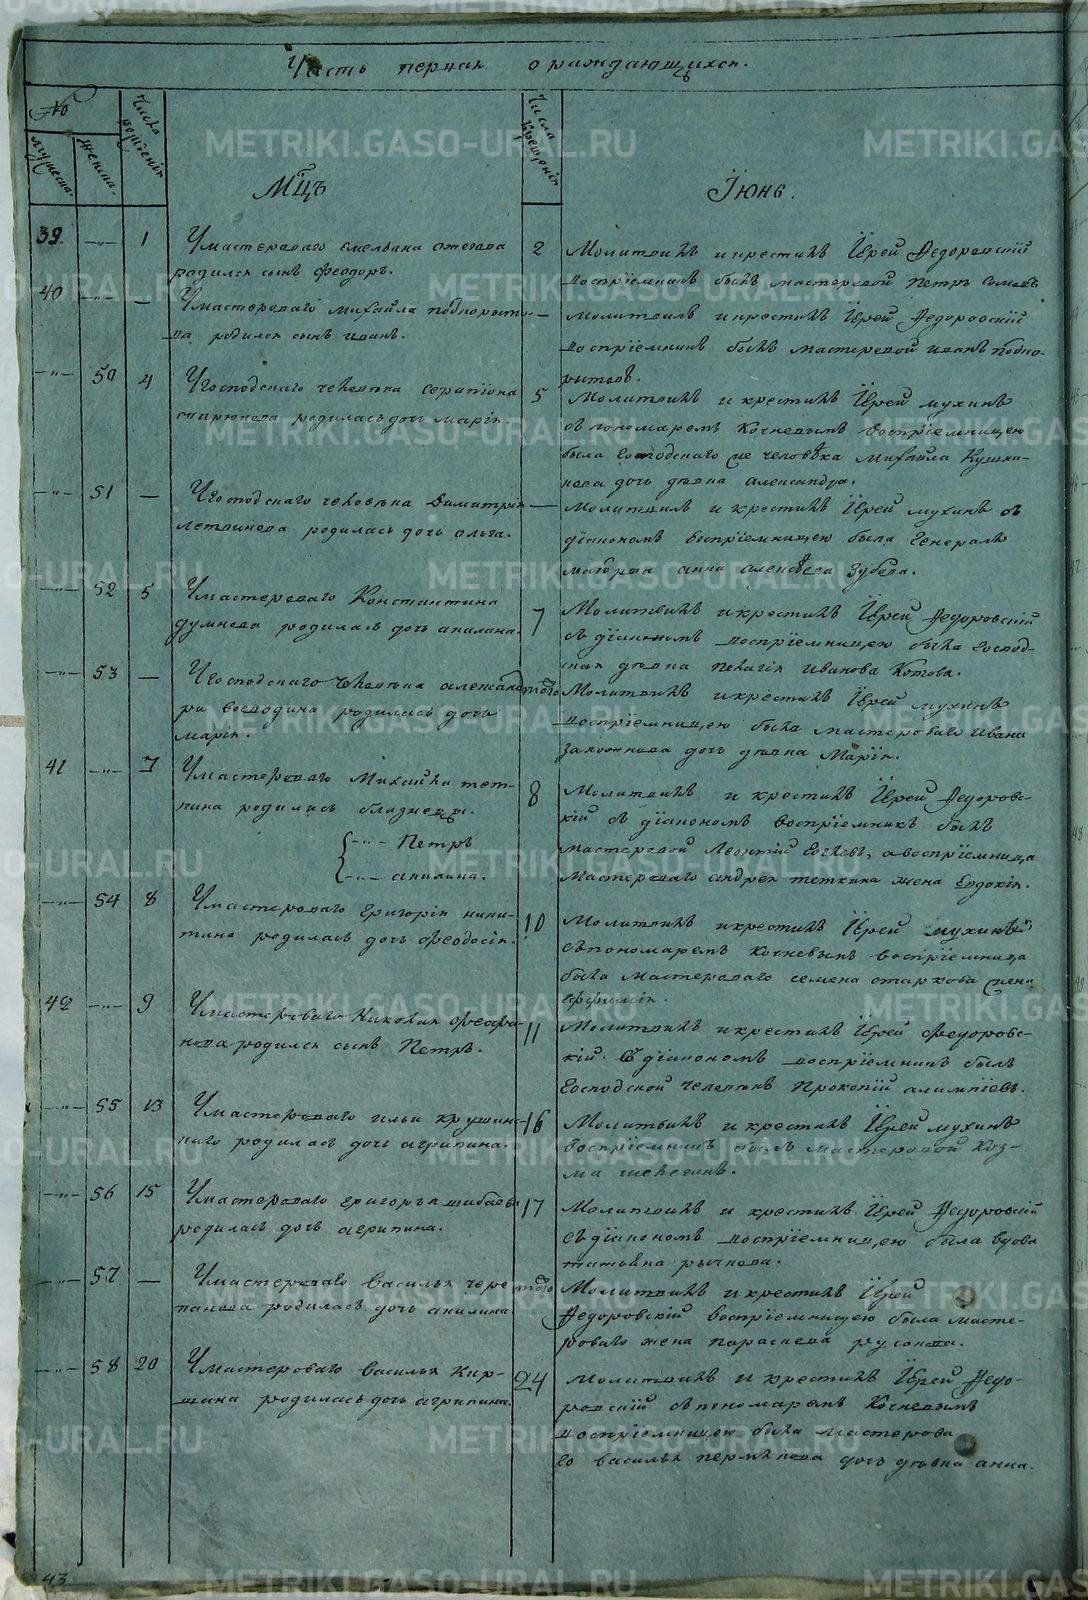 Часть первая о раждающихся.
No
мужеска.
женска.
Числа рождения
Числа крещения
Мцъ
Іюнь.
39 —"— 1 У мастероваго Емельяна Ожегова 2 Молитвилъ и крестилъ Іерей Федоровскій
родился сынъ Феодоръ. воспріемникъ былъ мастеровой Петръ
40 —"— — У мастероваго Михайла Подкорыто- — Молитвилъ и крестилъ Іерей Федоровскій
ва родился сынъ Иванъ. воспріемникъ былъ мастеровой Иванъ Подко-
рытовъ.
—"— 50 4 У господскаго человѣка Серапіона 5 Молитвилъ и крестилъ Іерей Мухинъ
родилась дочь Марія. съ пономаремъ Кочневымъ воспріемницею
была господскаго же человѣка Михайла Кушки-
нова дочь дѣвка Александра.
—"— 51 — У господскаго человѣка Димитрія — Молитвилъ и крестилъ Іерей Мухинъ съ
Летвинова родилась дочь Ольга. діакономъ воспріемницею была Генералъ
маіорша Анна Алексѣева Зубова.
—"— 52 5 У мастероваго Константина 7 Молитвилъ и крестилъ Іерей Федоровскій
Думнова родилась дочь Акилина. съ діакономъ воспріемницею была господ-
ская дѣвка Пелагія Иванова Котова.
—"— 53 — У господскаго человѣка Александ- того Молитвилъ и крестилъ Іерей Мухинъ
ра Воеводина родилась дочь воспріемницею была мастероваго Ивана
Марія. дочь дѣвка Марія.
41 —"— 7 У мастероваго Михайла Тет- 8 Молитвилъ и крестилъ Іерей Федоровс-
кина родились близнецы. кій съ діакономъ воспріемникъ былъ
—"— Петръ мастеровой Леонтій а воспріемница
—"— Акилина. мастероваго Андрея Теткина жена Евдокія.
—"— 54 8 У мастероваго Григорія Ники- 10 Молитвилъ и крестилъ Іерей Мухинъ
тина родилась дочь Феодосія. съ пономаремъ Кочневымъ воспріемница
была мастероваго Семена Старкова жена
Евфимія.
42 —"— 9 У мастероваго Николая Феофа- 11 Молитвилъ и крестилъ Іерей Федоровс-
нова родился сынъ Петръ. кій съ діакономъ воспріемникъ былъ
господской человѣкъ Прокопій Алимпіевъ.
—"— 55 13 У мастероваго Ильи Крушинс- 16 Молитвилъ и крестилъ Іерей Мухинъ
каго родилась дочь Агрипина. воспріемникъ былъ мастеровой Коз-
ма
—"— 56 15 У мастероваго Григорья Шибаева 17 Молитвилъ и крестилъ Іерей Федоровскій
родилась дочь Агрипина. съ діакономъ воспріемницею была вдова
Татьяна Рычкова.
—"— 57 — У мастероваго Василья Чере- того Молитвилъ и крестилъ Іерей
панова родилась дочь Акилина. Федоровскій воспріемницею была масте-
роваго жена Параскева Русакова.
—"— 58 20 У мастероваго Василья Кир- 24 Молитвилъ и крестилъ Іерей Федо-
шина родилась дочь Агрипина. ровскій съ пономаремъ Кочневымъ
воспріемницею была мастерова
го Василья Пермякова дочь дѣвка Анна.
43
METRIKI.GASO-URAL.RU